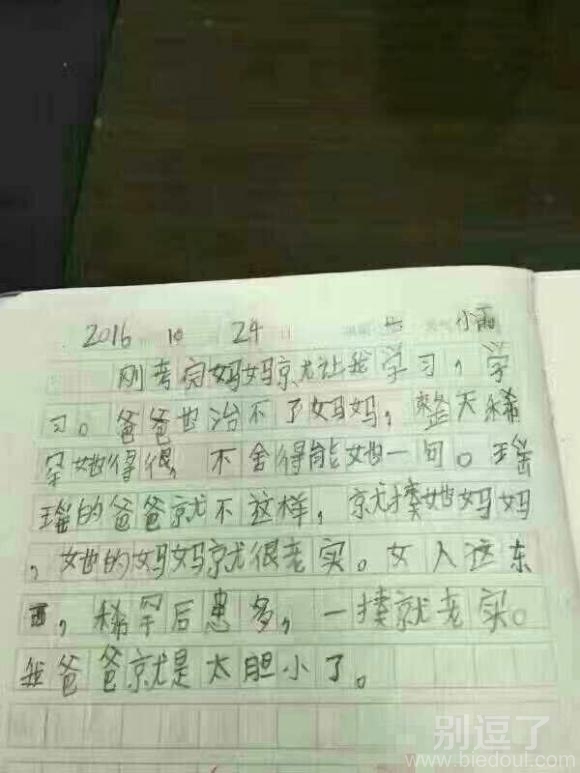 2016 10 24 日 小雨
刚考完妈妈就让我学习，学
习。爸爸也治不了妈妈，整天稀
罕她得很，不舍得能她一句。瑶
瑶的爸爸就不这样，就揍她妈妈
，她的妈妈就很老实。女人这东
西，稀罕后患多，一揍就老实。
我爸爸就是太胆小了。
别逗了
www.biedoul.com